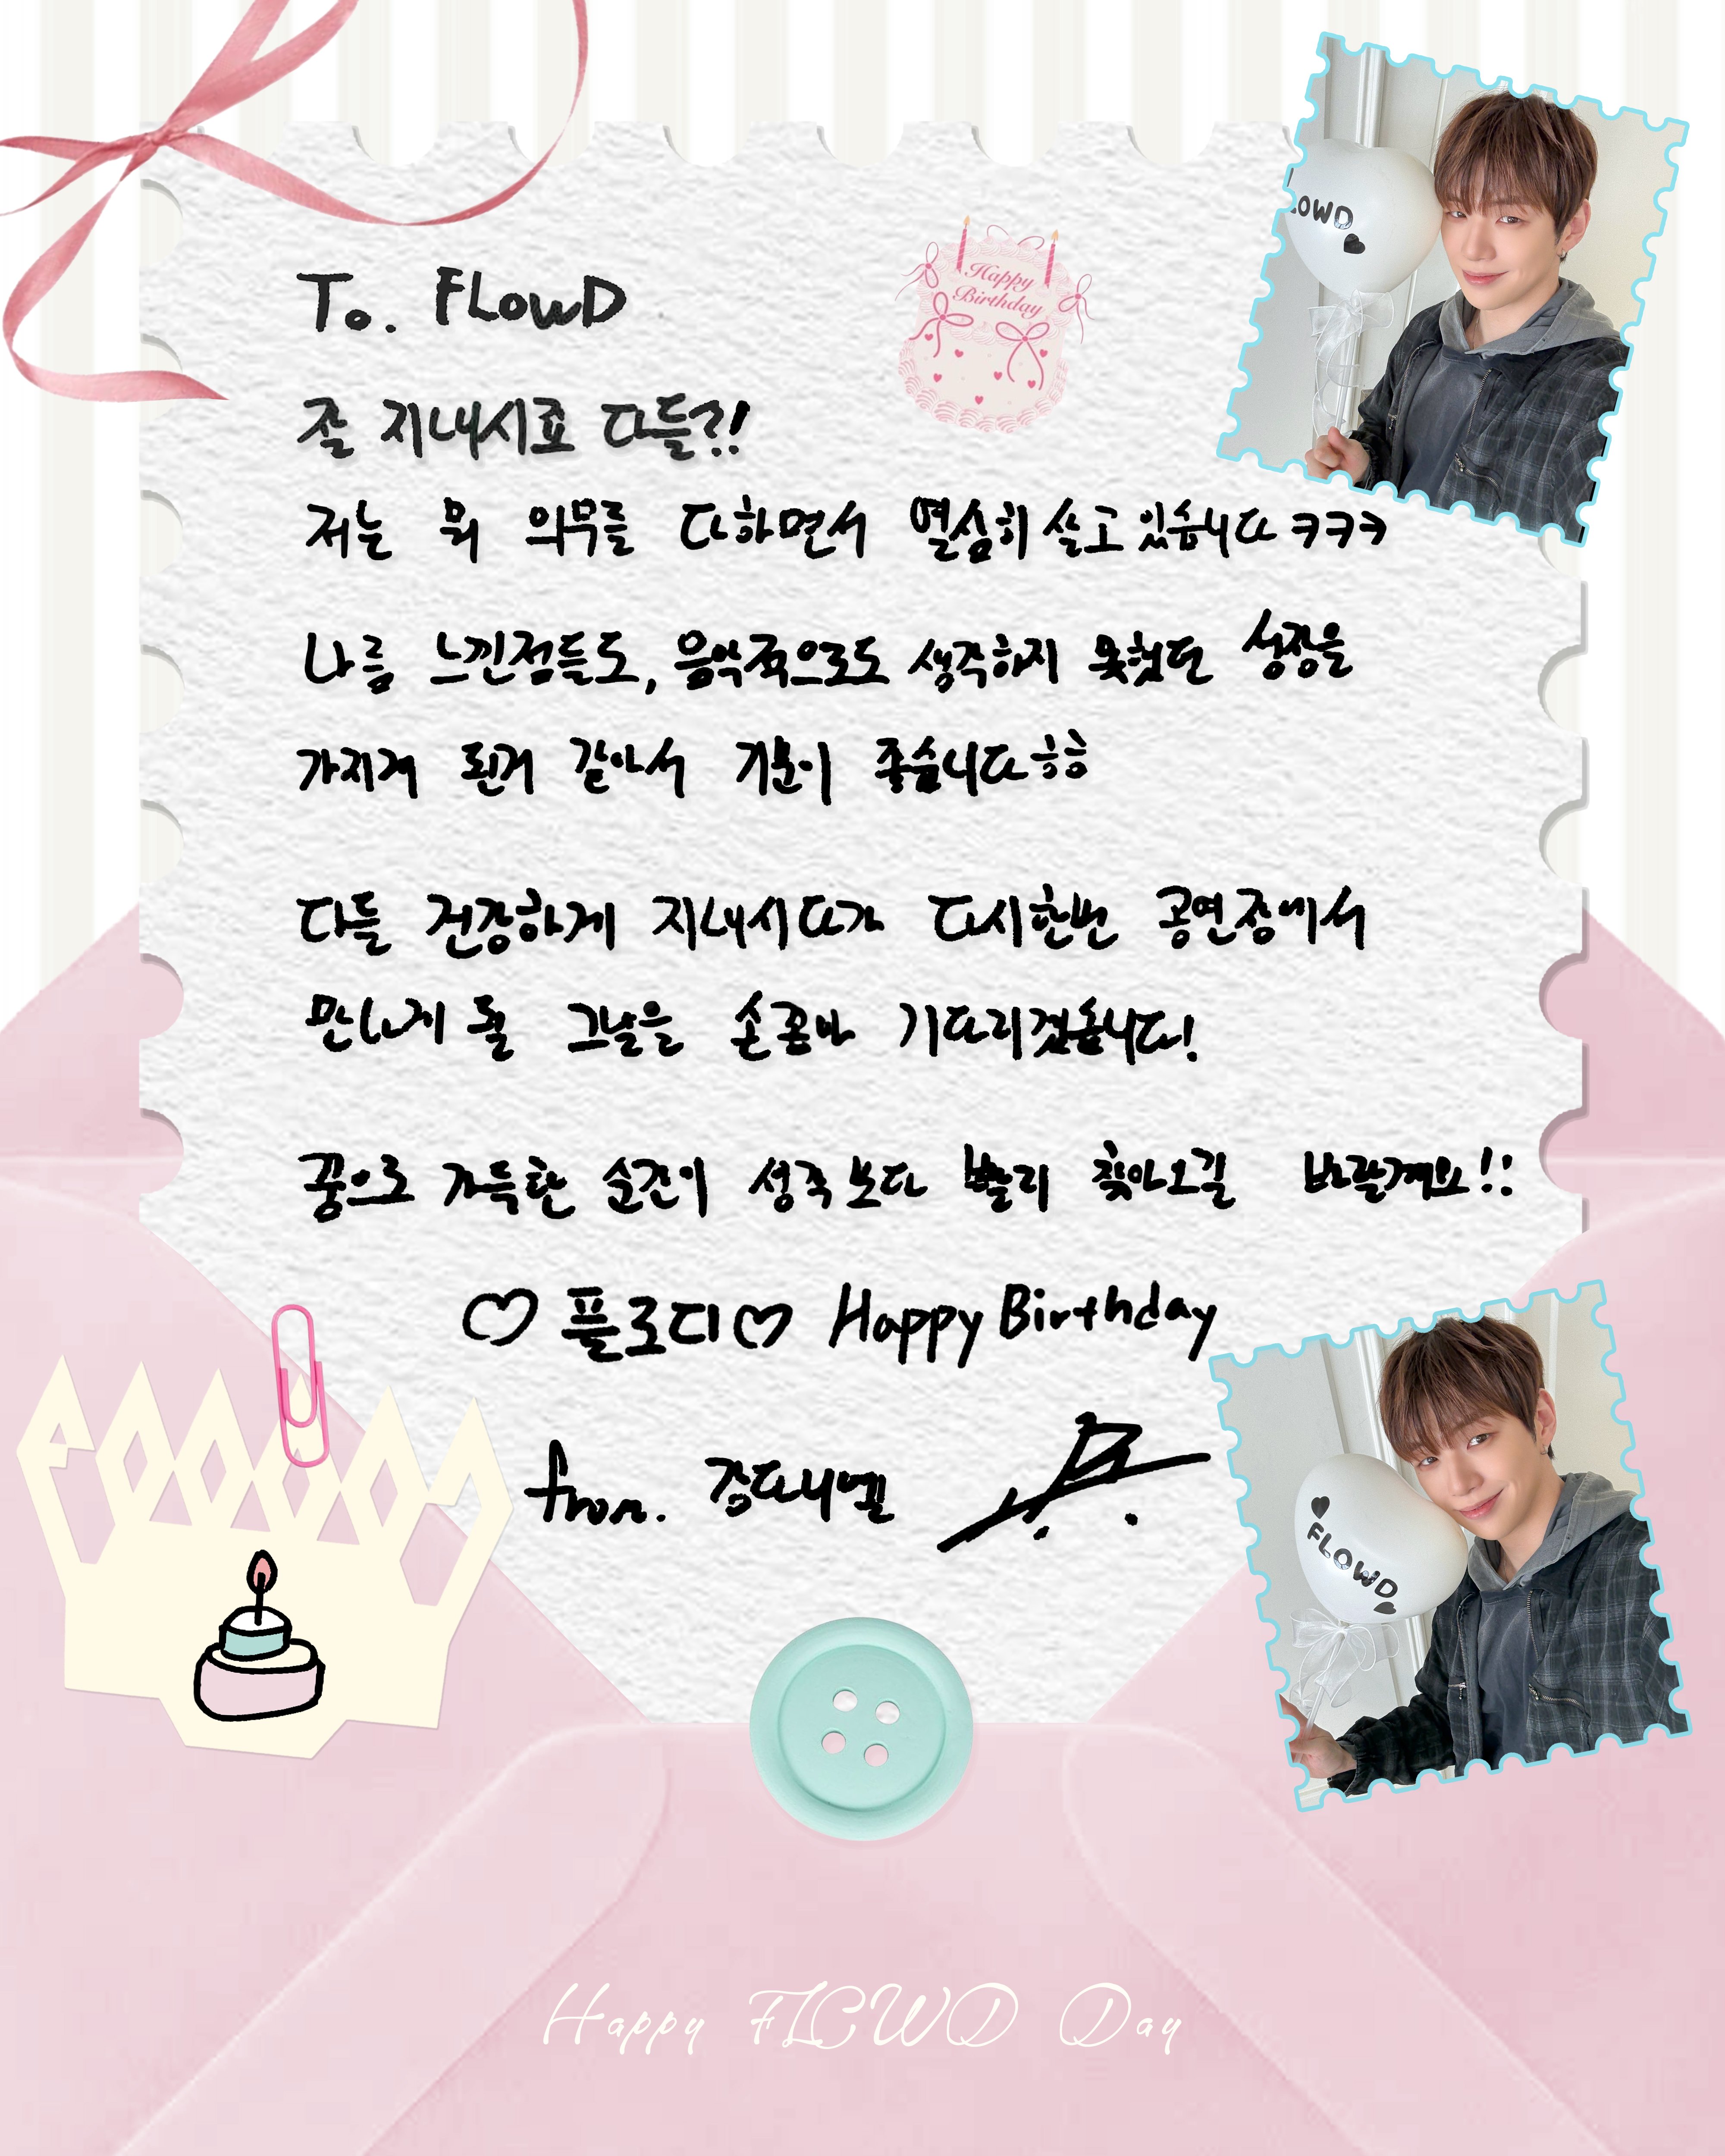 To. FLowD
Happy
Birthday
LOWD
잘 지내시죠 다들?!
저는 뭐 의무를 다하면서 열심히 살고 있습니다 ㅋㅋㅋ
나름 느낀점들도, 음악적으로도 생각하지 못했던 성장을
가지게 된거 같아서 기분이 좋습니다ㅎㅎ
다들 건강하게 지내시다가 다시한번 공연장에서
만나게 될 그날을 손꼽아 기다리겠습니다!
꿈으로 가득한 순간이 성큼보다 빨리 찾아오길 바랄게요!:
♡ 플로디♡ Happy Birthday
from. 강다니엘
FLOWD
Happy FLOWD Day